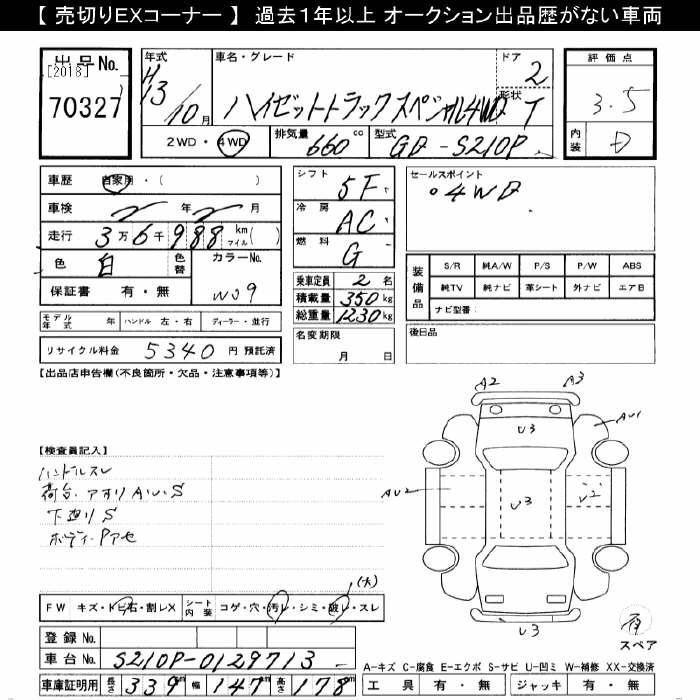 【 売切りEXコーナー 】 過去1年以上 オークション出品歴がない車両
出品No.
[2018]
70327
年式
H13/10月
車名・グレード
ハイゼットトラックスペシャル4WD
ドア
2
形状
T
評価点
3.5
内装
D
2WD・4WD
排気量
660cc
型式
GD-S210P
車歴 自家用・( )
車検 年 月
走行 3万6千988km マイル( )
色 白
色替
カラーNo.
W09
保証書 有・無
シフト
5F
冷房
AC
燃料
G
乗車定員 2名
積載量 350kg
総重量 1230kg
セールスポイント
○4WD
装備品
S/R 純A/W P/S P/W ABS
純TV 純ナビ 革シート 外ナビ エアB
ナビ型番:
モデル年式 年 ハンドル 左・右 ディーラー・並行
リサイクル料金 5340円 預託済
名変期限
月 日
後日品
【出品店申告欄(不良箇所・欠品・注意事項等)】
A2
A3
AU1
U3
AU2
U3
U2
U3
【検査員記入】
ハンドルスレ
荷台.アオリAU.S
下廻りS
ボディーPアセ
(大)
FW キズ・トビ石・割レX
シート内装 コゲ・穴・汚レ・シミ・破レ・スレ
登録No.
車台No. S210P-0129713
車庫証明用 長さ 339cm 幅 147cm 高さ 178cm
スペア
A-キズ C-腐食 E-エクボ S-サビ U-凹ミ W-補修 XX-交換済
工具 有・無 ジャッキ 有・無